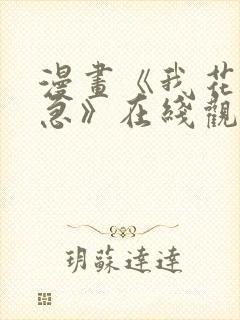 漫畫《我花
急》在綫觀
玥蘇達達